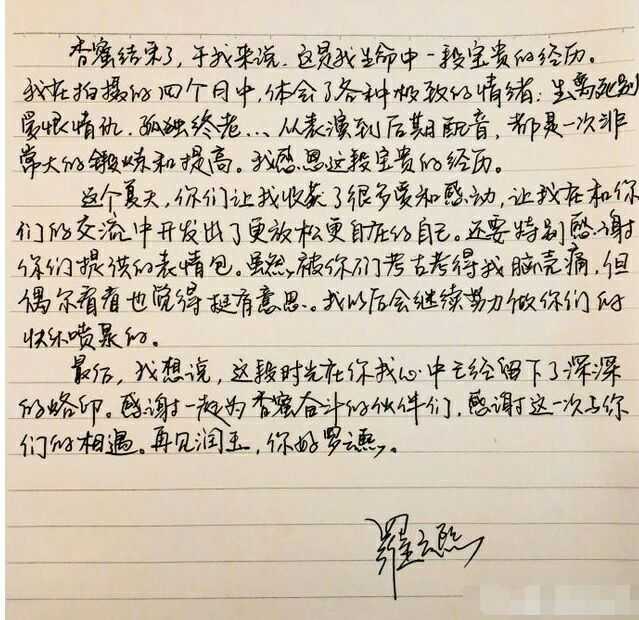 香蜜结束了，于我来说，这是我生命中一段宝贵的经历。
我在拍摄的四个月中，体会了各种极致的情绪：生离死别
爱恨情仇，孤独终老...从表演到后期配音，都是一次非
常大的锻炼和提高。我感恩这段宝贵的经历。
这个夏天，你们让我收获了很多爱和感动，让我在和你
们的交流中开发出了更放松更自在的自己。还要特别感谢
你们提供的表情包。虽然，被你们考古考得我脑壳痛，但
偶尔看看也觉得挺有意思。我以后会继续努力做你们的
快乐喷泉的。
最后，我想说，这段时光在你我心中已经留下了深深
的烙印。感谢一起为香蜜奋斗的伙伴们，感谢这一次与你
们的相遇。再见润玉，你好罗云熙。
羅云熙